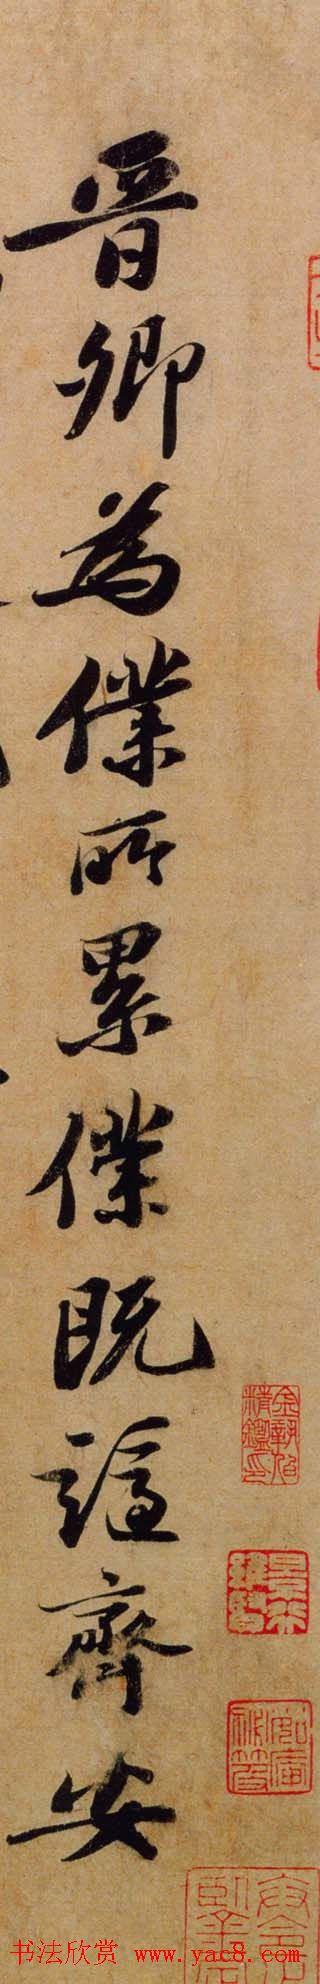 晋卿为僕所累僕既谪齊安
书法欣赏 www.yac8.com